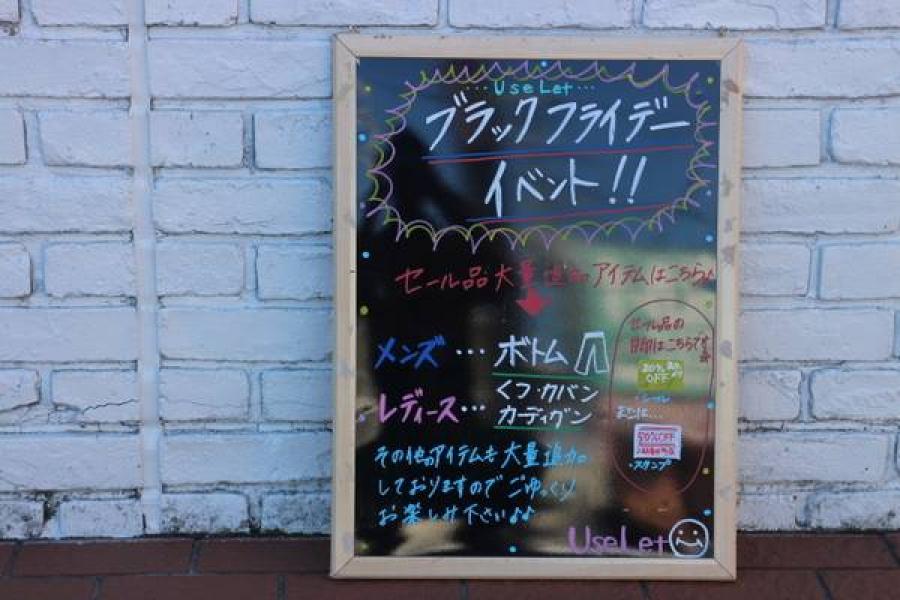 …UseLet…
ブラックフライデー
イベント!!
セール品大量追加アイテムはこちら♪
メンズ…ボトム
レディース…くつ・カバン
カーディガン
その他のアイテムも大量追加
しておりますのでごゆっくり
お楽しみ下さい♪♪
セール品の
目印はこちらです
OFF
・シール
さらに…
50%OFF
・スタンプ
UseLet